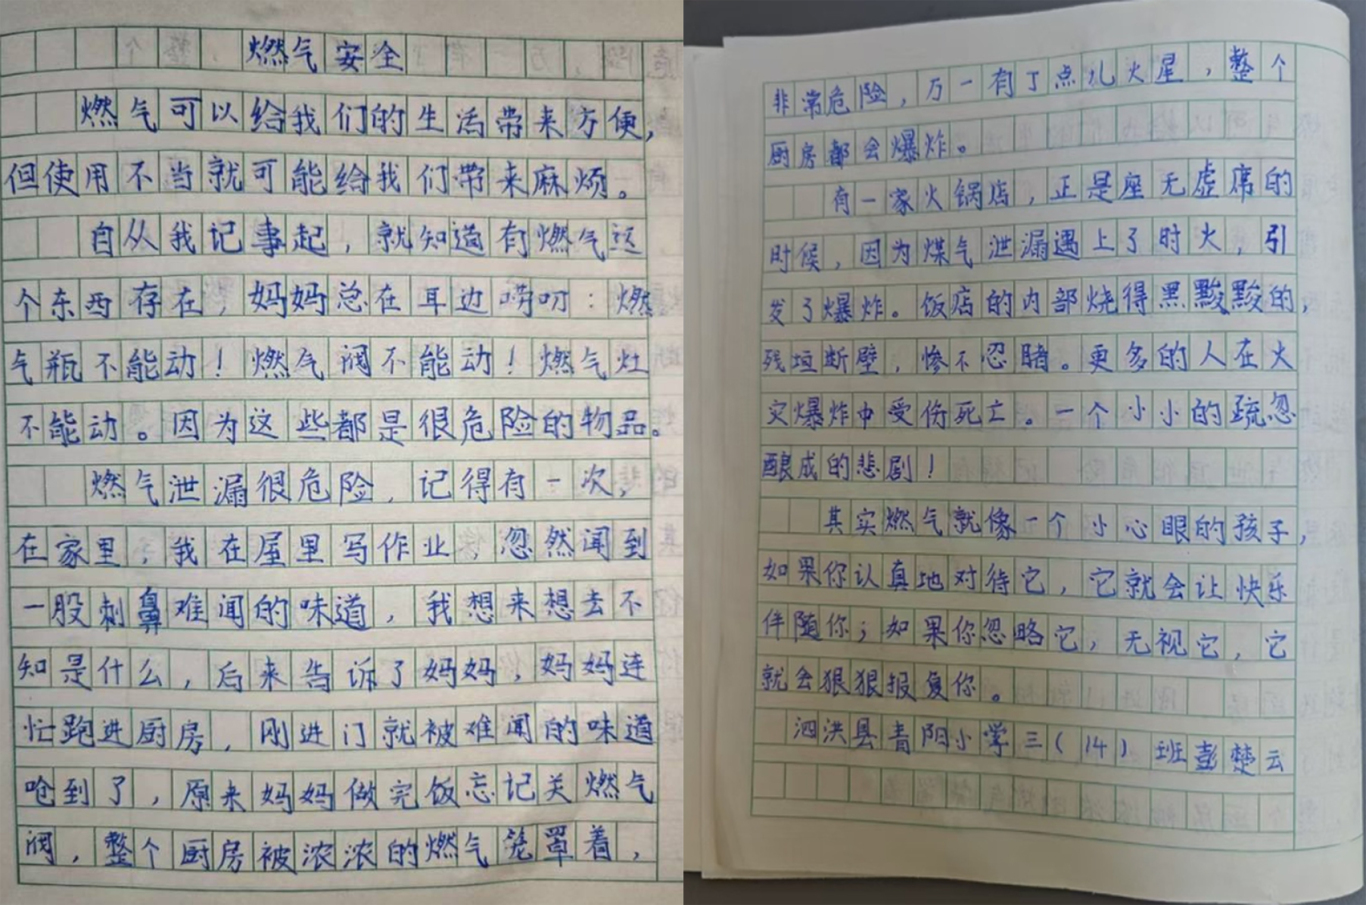 燃气安全
燃气可以给我们的生活带来方便，
但使用不当就可能给我们带来麻烦。
自从我记事起，就知道有燃气这
个东西存在，妈妈总在耳边唠叨：燃
气瓶不能动！燃气阀不能动！燃气灶
不能动。因为这些都是很危险的物品。
燃气泄漏很危险，记得有一次，
在家里，我在屋里写作业，忽然闻到
一股刺鼻难闻的味道，我想来想去不
知是什么，后来告诉了妈妈，妈妈连
忙跑进厨房，刚进门就被难闻的味道
呛到了，原来妈妈做完饭忘记关燃气
阀，整个厨房被浓浓的燃气笼罩着，
非常危险，万一有了点儿火星，整个
厨房都会爆炸。
有一家火锅店，正是座无虚席的
时候，因为煤气泄漏遇上了时火，引
发了爆炸。饭店的内部烧得黑黢黢的，
残垣断壁，惨不忍睹。更多的人在火
灾爆炸中受伤死亡。一个小小的疏忽
酿成的悲剧！
其实燃气就像一个小心眼的孩子，
如果你认真地对待它，它就会让快乐
伴随你；如果你忽略它，无视它，它
就会狠狠报复你。
泗洪县青阳小学三（14）班彭楚云